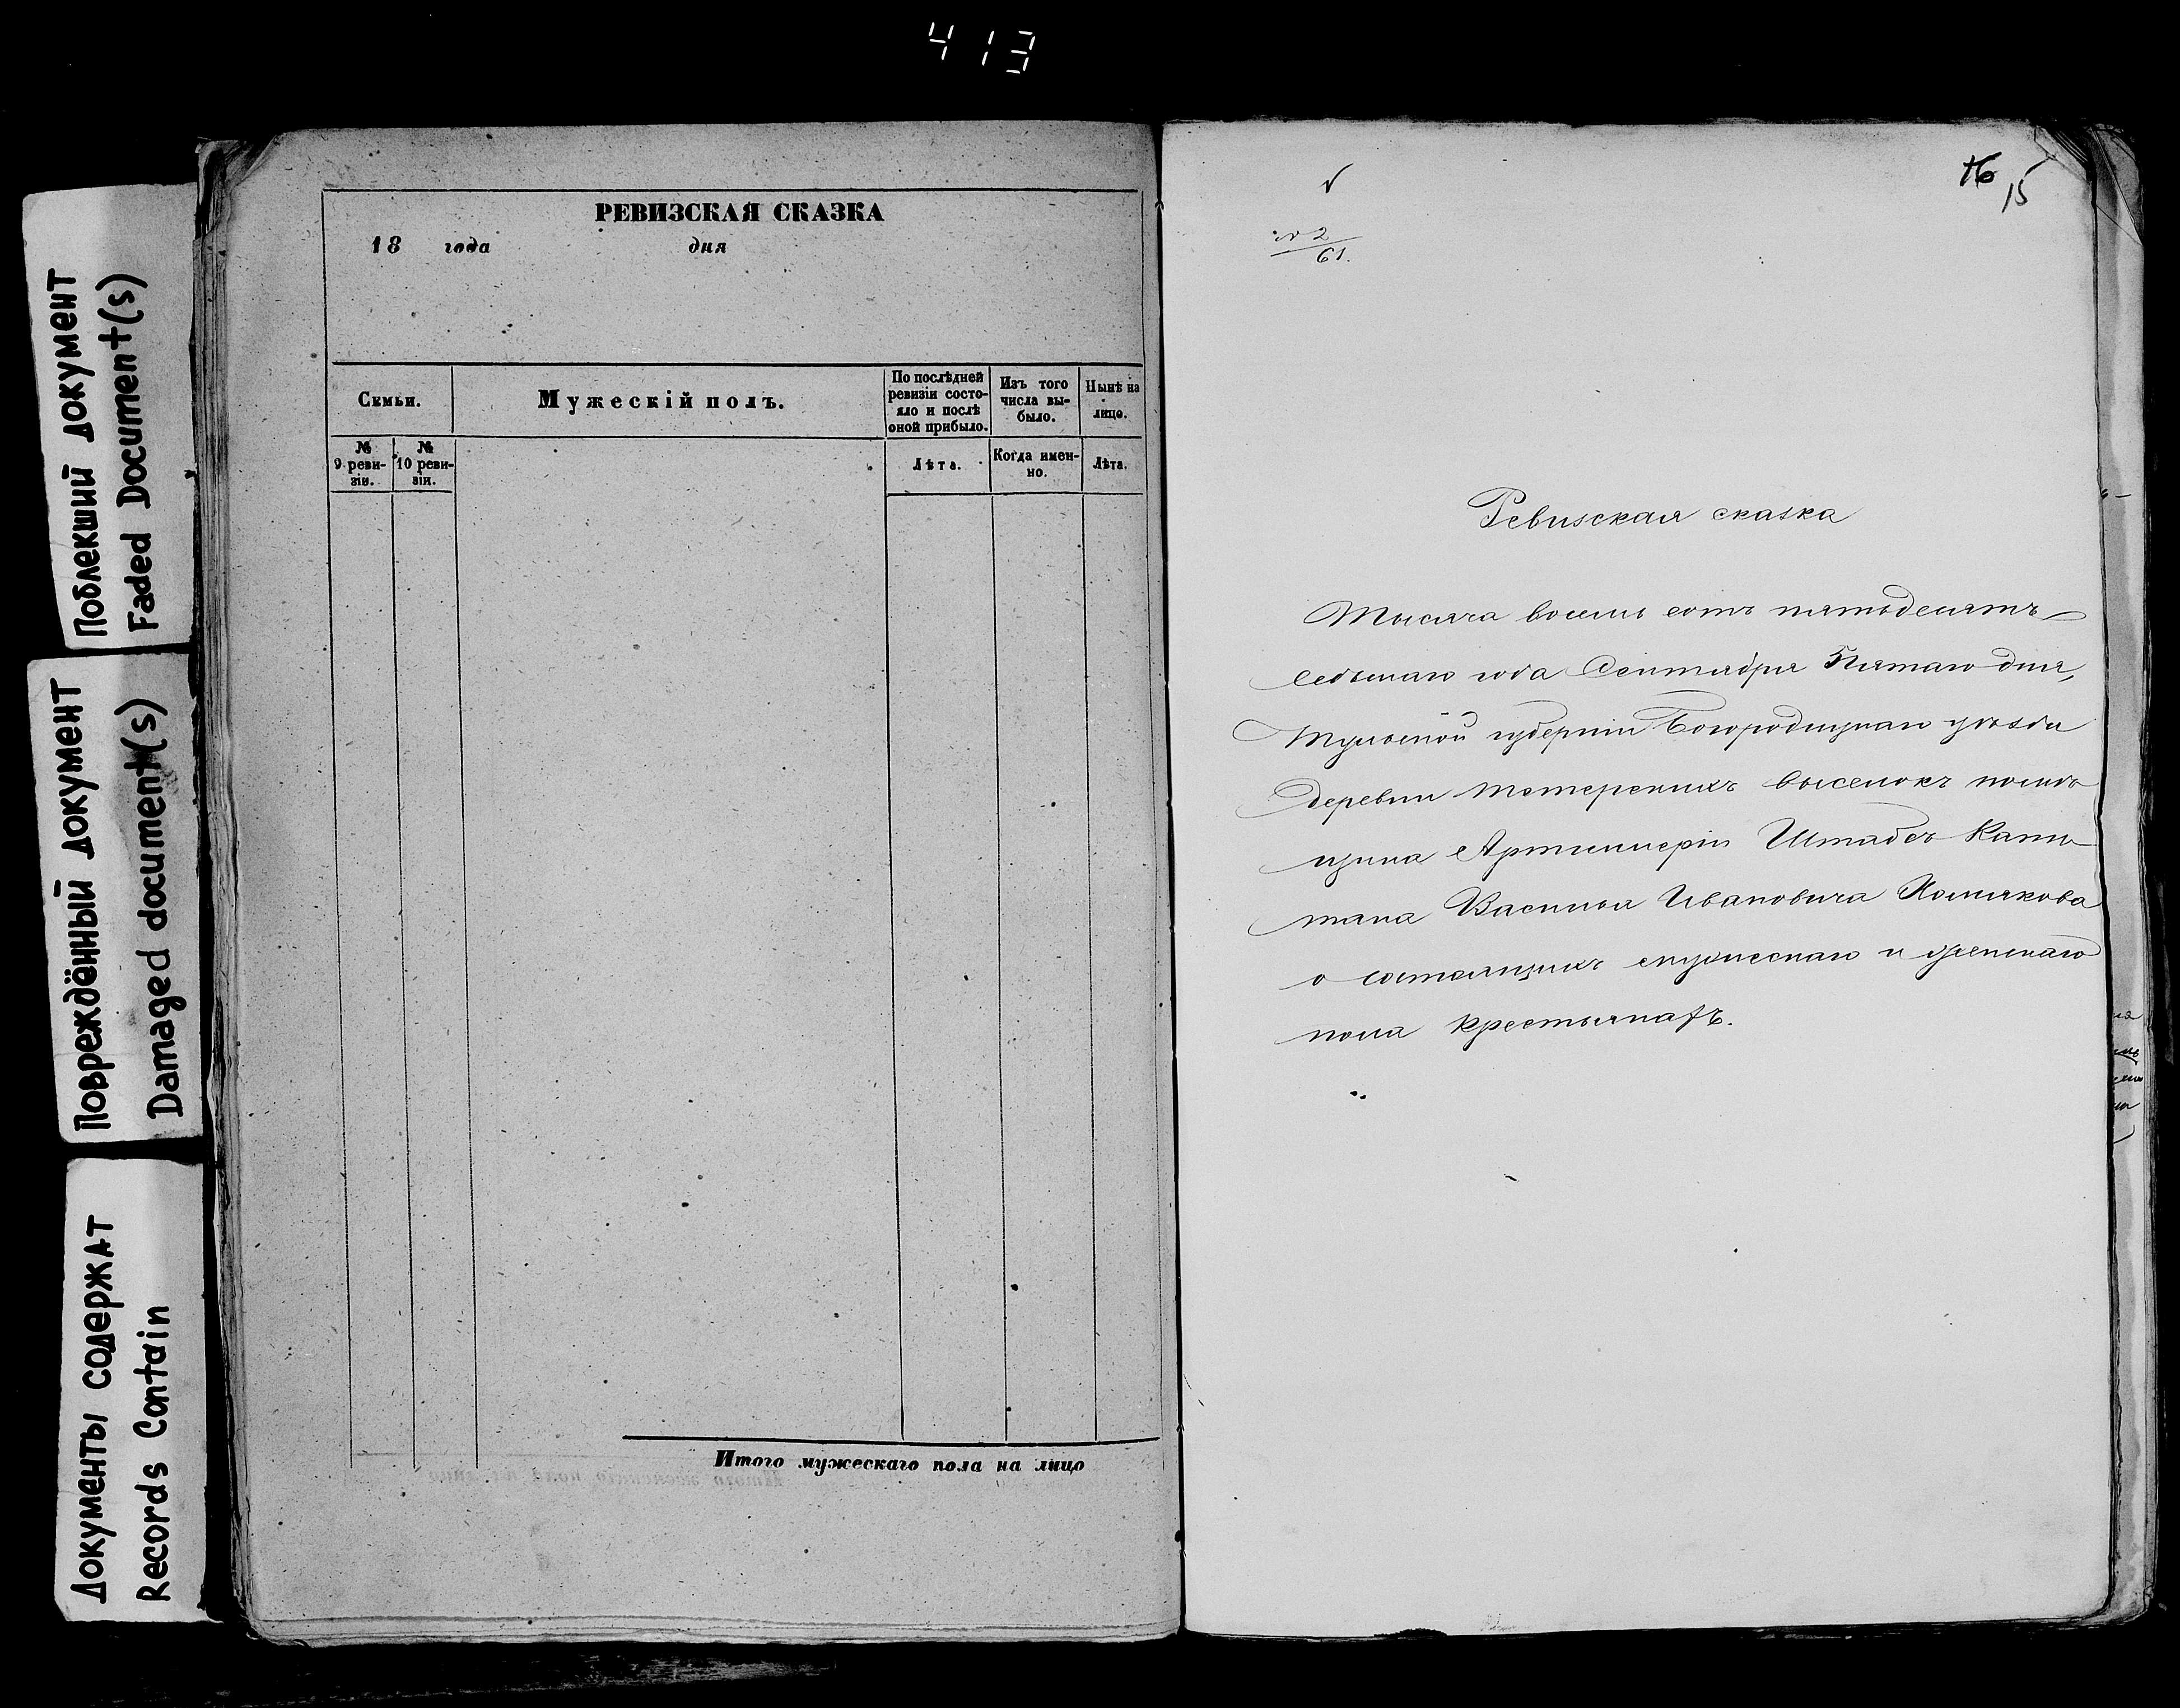 413
Поблекший документ
Faded Document(s)
Повреждённый документ
Damaged document(s)
Документы содержат
Records Contain
РЕВИЗСКАЯ СКАЗКА
18 года дня
Семьи.
Мужескій полъ.
По послѣдней ревизіи состо-
яло и послѣ оной прибыло.
Изъ того числа вы-
было.
Нынѣ на лицо.
№ 9 реви-
зіи.
№ 10 реви-
зіи.
Лѣта.
Когда имен-
но.
Лѣта.
Итого мужескаго пола на лицо
16
15
№ 2
61.
Ревизская сказка
Тысяча восемь сотъ пятьдесятъ
седьмаго года Сентября 5 Пятаго дня,
Тульской губерніи Богородицкаго уѣзда
деревни Тетерскихъ выселокъ помѣ
щика Артиллеріи Штабсъ Капи
тана Василья Ивановича Хомякова
о состоящихъ мужескаго и женскаго
пола крестьянахъ.